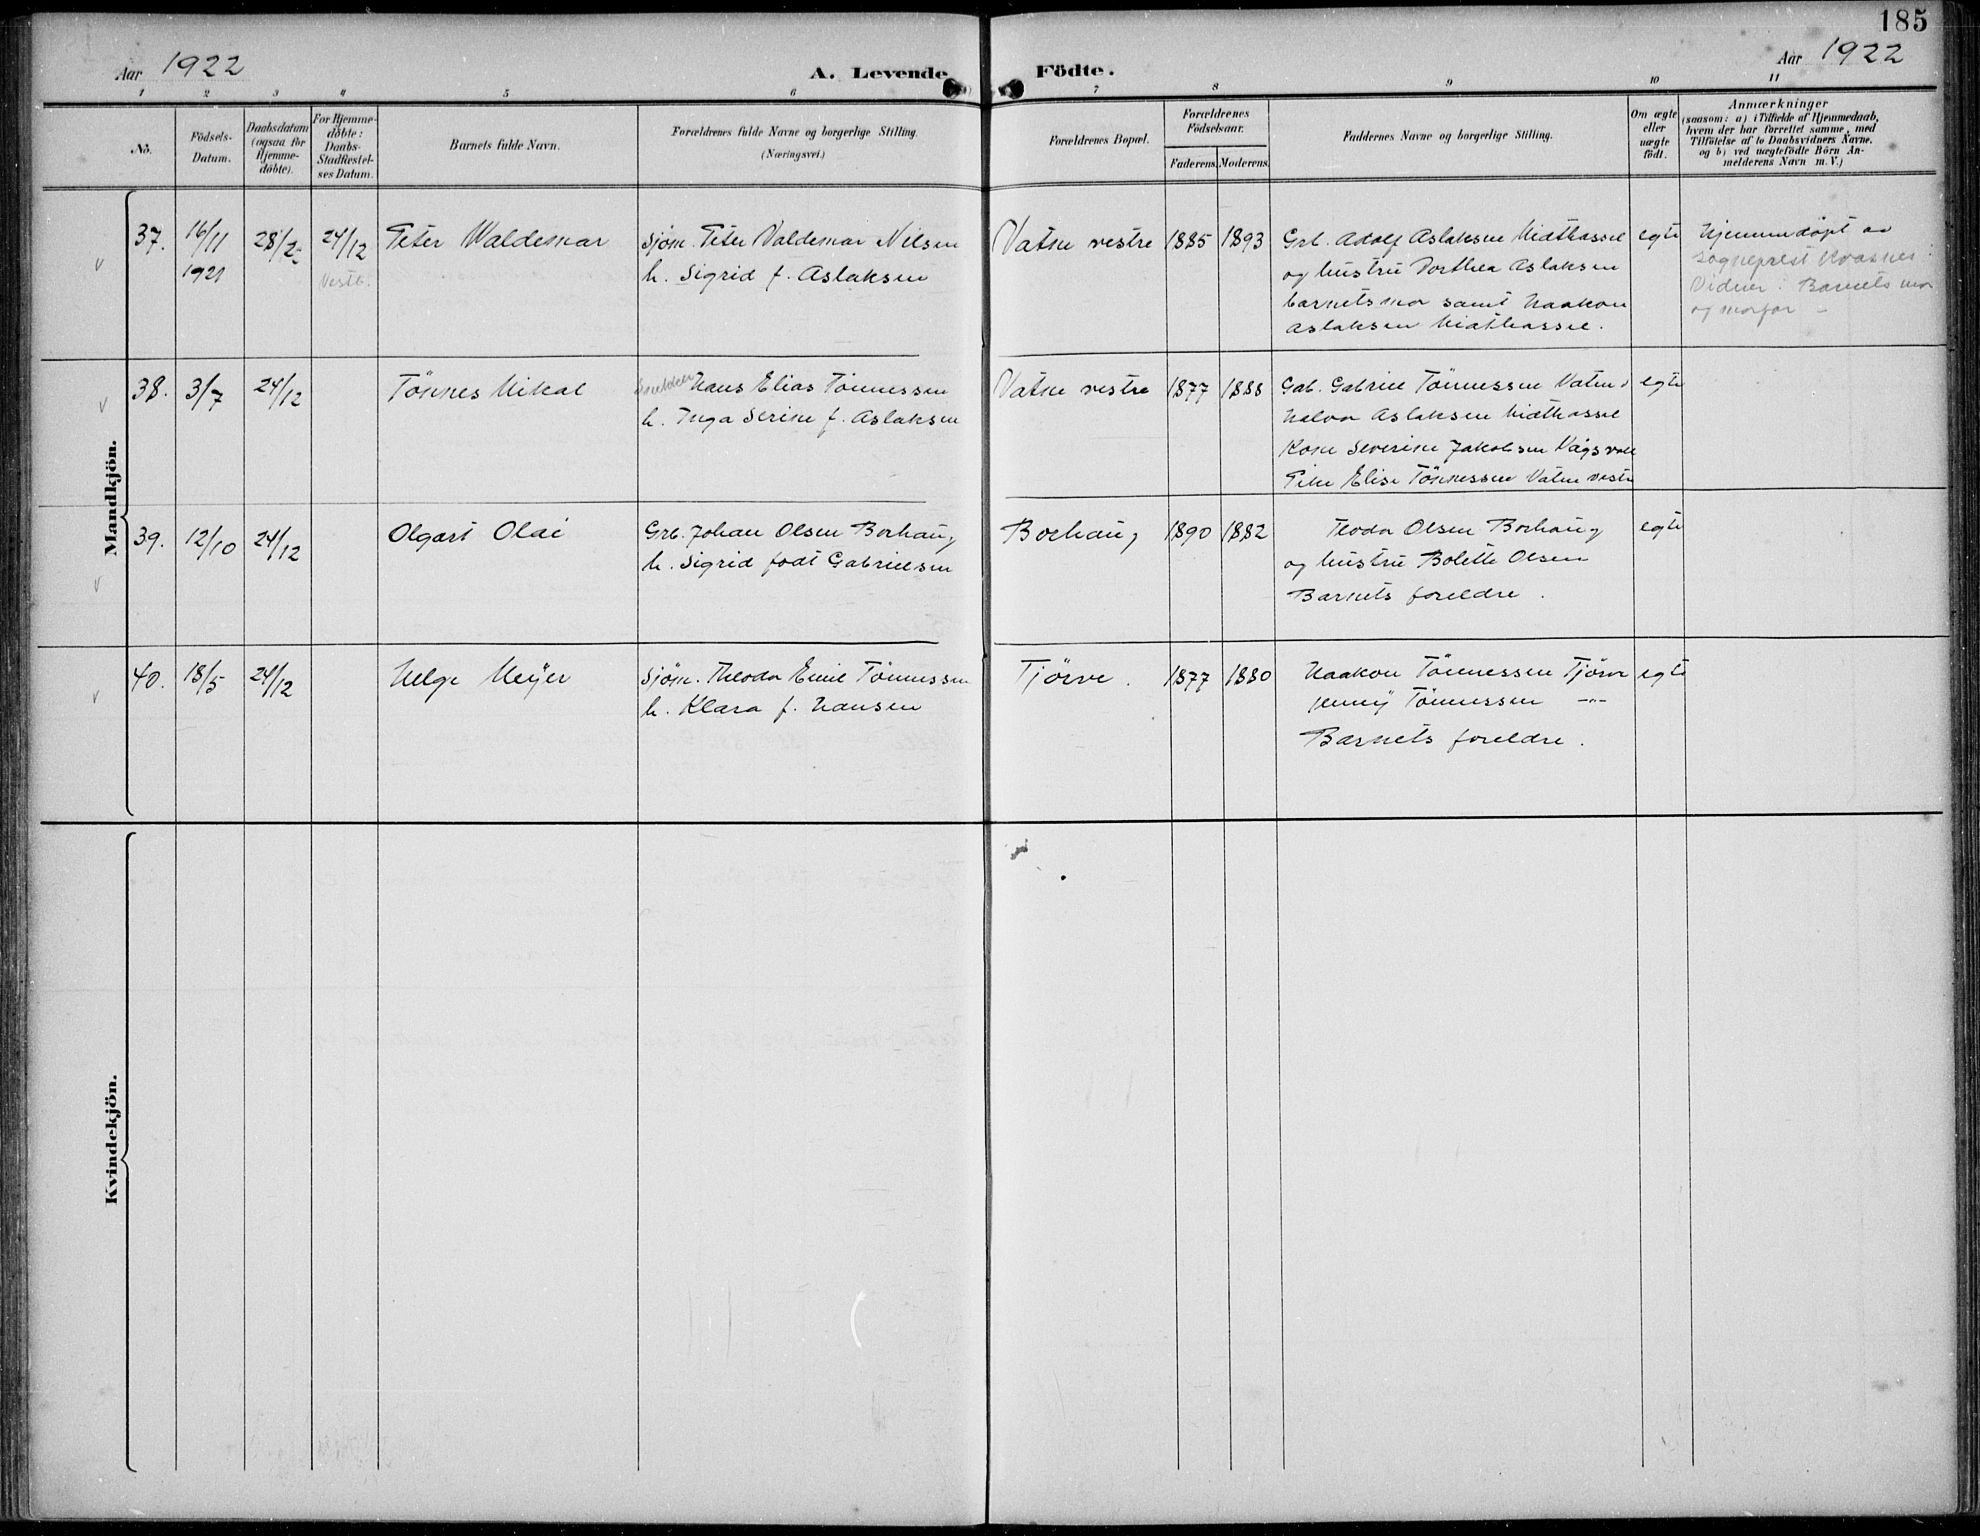 185
Aar 1922
A. Levende
Födte.
Aar 1922
1 2 3 4 5 6 7 8 9 10 11
No.
Födsels-
Datum.
Daabsdatum
(ogsaa for
Hjemme-
döbte).
For Hjemme-
döbte:
Daabs-
Stadfæstel-
ses Datum.
Barnets fulde Navn.
Forældrenes fulde Navne og borgerlige Stilling.
(Næringsvei.)
Forældrenes Bopæl.
Forældrenes
Födselsaar.
Faderens. Moderens.
Faddernes Navne og borgerlige Stilling.
Om ægte
eller
uægte
födt.
Anmærkninger
(saasom: a) i Tilfælde af Hjemmedaab,
hvem der har forrettet samme, med
Tilföielse af to Daabsvidners Navne.
og b) ved uægtefödte Börn An-
melderens Navn m. V.)
Mandkjön.
37.
16/11
1921
28/2
24/12
Vestb.
Peter Waldemar
Sjöm. Peter Valdemar Nilsen
h. Sigrid f. Aslaksen
Vatne vestre
1885
1893
Grb. Adolf Aslaksen Midthassel
og hustru Dorthea Aslaksen
barnets mor samt Haakon
Aslaksen Midthassel.
egte
Hjemmedöpt av
sogneprest Kvasnes.
Vidner: Barnets mor
og morfar –
38.
3/7
24/12
Tönnes Mikal
Snekker Hans Elias Tönnessen
h. Inga Serine f. Aslaksen
Vatne vestre
1877
1888
Gab. Gabriel Tönnessen Vatne v
Halvor Aslaksen Midthassel
Kone Severine Jakobsen Vågsvoll
Pike Elise Tönnessen Vatne vestre
egte
39.
12/10
24/12
Olgart Olai
Grb. Johan Olsen Borhaug
h. Sigrid født Gabrielsen
Borhaug
1890
1882
Teodor Olsen Borhaug
og hustru Bolette Olsen
Barnets foreldre.
egte
40.
18/5
24/12
Helge Meÿer
Sjöm. Theodor Emil Tönnessen
h. Klara f. Hansen
Tjörve.
1877
1880
Haakon Tönnessen Tjörve
Jenny Tönnessen –"–
Barnets foreldre.
egte
Kvindekjön.